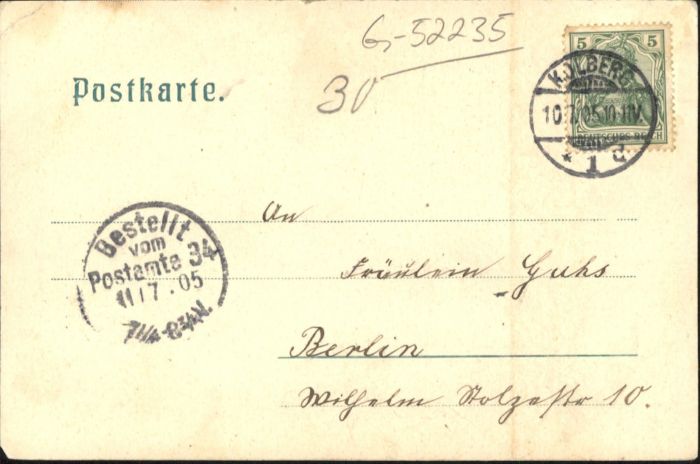 G-52235
30
5 5
DEUTSCHES REICH
KOLBERG
10.7.05.10-11V.
* 1 d.
Postkarte.
Bestellt
vom
Postamte 34
11/7.05
7¼-8¾V.
An
Fräulein Guhs
Berlin
Wilhelm Stolzestr 10.